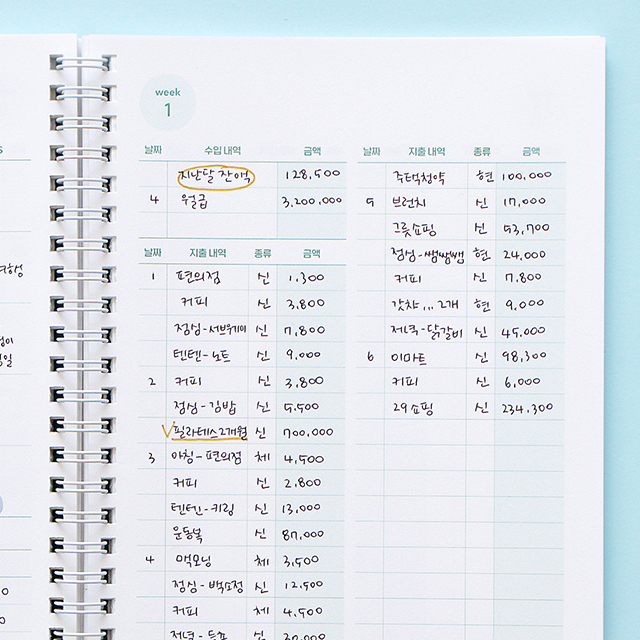 week
1
날짜 수입 내역 금액
지난달 잔액 128,500
4 월급 3,200,000
날짜 지출 내역 종류 금액
1 편의점 신 1,300
커피 신 3,800
점심-서브웨이 신 7,800
텐텐-노트 신 9,000
2 커피 신 3,800
점심-김밥 신 5,500
필라테스 2개월 신 700,000
3 아침-편의점 체 4,500
커피 신 2,800
텐텐-키링 신 13,000
운동복 신 87,000
4 맥모닝 체 3,500
점심-백소정 신 12,500
커피 체 4,500
날짜 지출 내역 종류 금액
주택청약 현 100,000
5 브런치 신 17,000
그릇쇼핑 신 53,700
점심-쌤쌤쌤 현 24,000
커피 신 7,800
갓챠,,, 2개 현 9,000
저녁-닭갈비 신 45,000
6 이마트 신 98,300
커피 신 6,000
29쇼핑 신 234,300